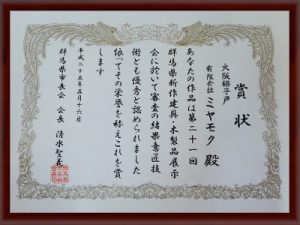 賞状
大阪格子戸
有限会社ミヤモク殿
あなたの作品は第二十一回
群馬県新作建具・木製品展示
会に於いて審査の結果意匠技
術とも優秀と認められました
依ってその栄誉を称えこれを賞
します
平成二十五年五月十六日
群馬県市長会 会長 清水聖義